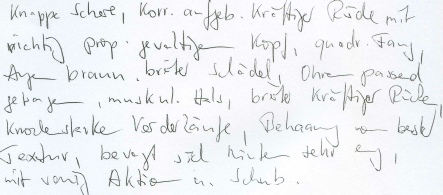 Knappe Schere, Korr. aufgeb. Kräftiger Rüde mit
richtig prop. gewaltigem Kopf, quadr. Fang,
Augen braun, breiter Schädel, Ohren passend
getragen, muskul. Hals, breiter kräftiger Rücken,
Knochenstarke Vorderläufe, Behaarung von bester
Textur, bewegt sich hinten sehr eng,
mit wenig Aktion u. Schub.